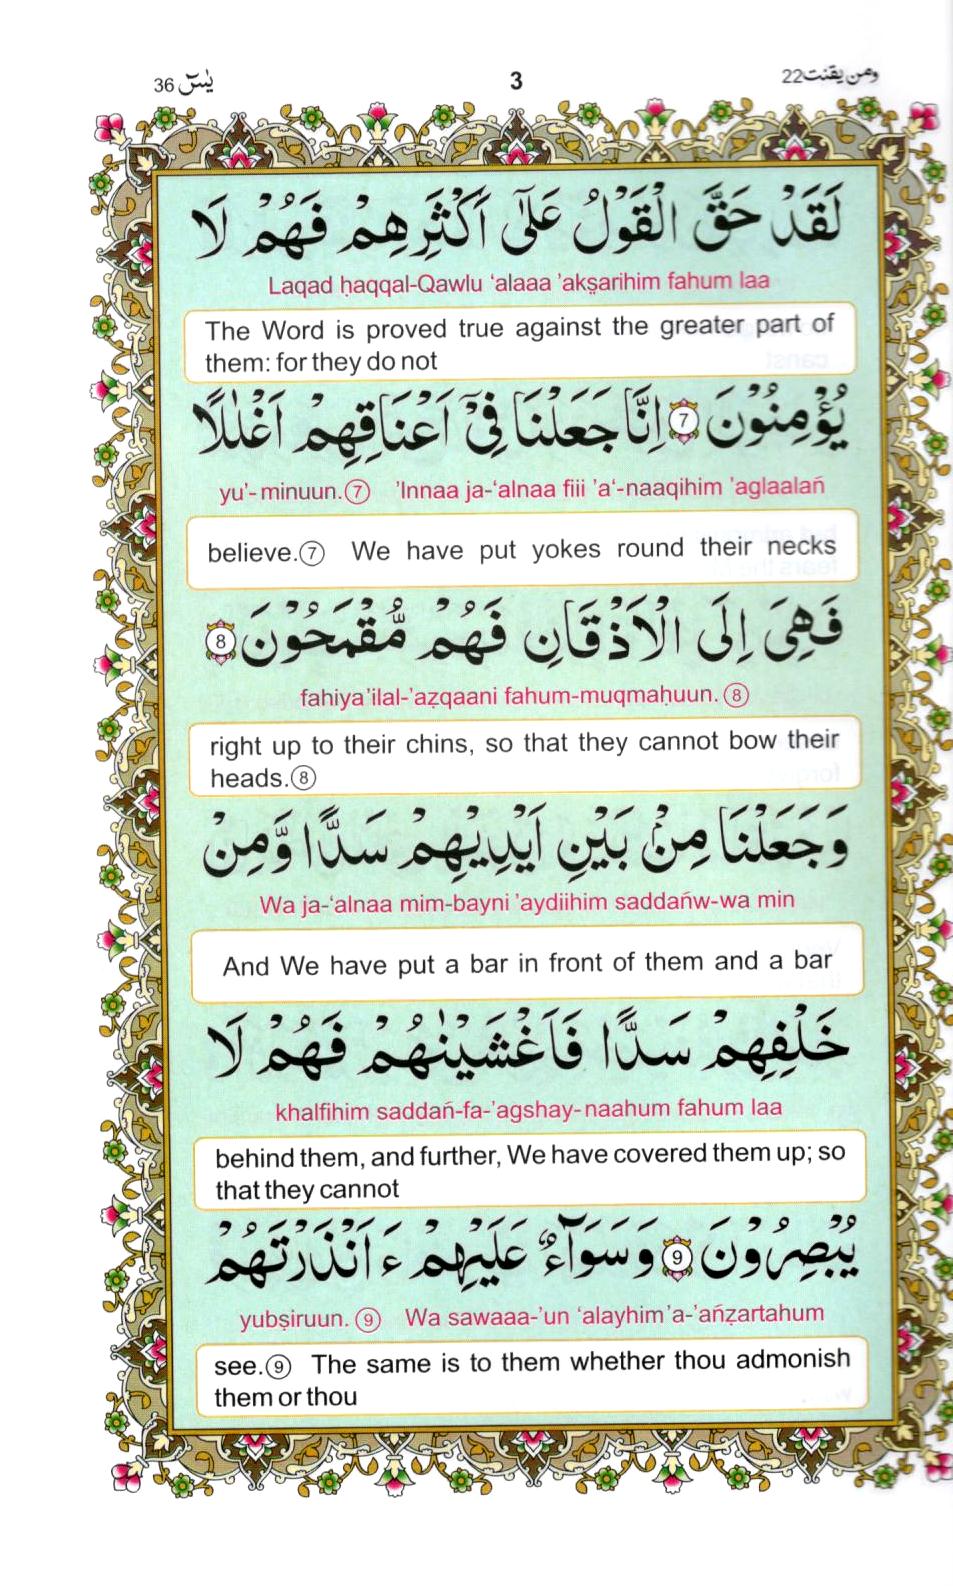 يٰسٓ 36
3
ومن يقنت 22
لَقَدْ حَقَّ الْقَوْلُ عَلٰٓى اَكْثَرِهِمْ فَهُمْ لَا
Laqad ḥaqqal-Qawlu ‘alaaa ’akṣarihim fahum laa
The Word is proved true against the greater part of
them: for they do not
يُؤْمِنُوْنَ 7 اِنَّا جَعَلْنَا فِىْٓ اَعْنَاقِهِمْ اَغْلٰلًا
yu’- minuun.⑦ ’Innaa ja-‘alnaa fiii ’a‘-naaqihim ’aglaalań
believe.⑦ We have put yokes round their necks
فَهِىَ اِلَى الْاَذْقَانِ فَهُمْ مُّقْمَحُوْنَ 8
fahiya ’ilal-’aẓqaani fahum-muqmaḥuun. ⑧
right up to their chins, so that they cannot bow their
heads.⑧
وَجَعَلْنَا مِنْۢ بَيْنِ اَيْدِيْهِمْ سَدًّا وَّمِنْ
Wa ja-‘alnaa mim-bayni ’aydiihim saddańw-wa min
And We have put a bar in front of them and a bar
خَلْفِهِمْ سَدًّا فَاَغْشَيْنٰهُمْ فَهُمْ لَا
khalfihim saddań-fa-’agshay-naahum fahum laa
behind them, and further, We have covered them up; so
that they cannot
يُبْصِرُوْنَ 9 وَسَوَآءٌ عَلَيْهِمْ ءَاَنْذَرْتَهُمْ
yubṣiruun. ⑨ Wa sawaaa-’un ‘alayhim ’a-’ańẓartahum
see.⑨ The same is to them whether thou admonish
them or thou